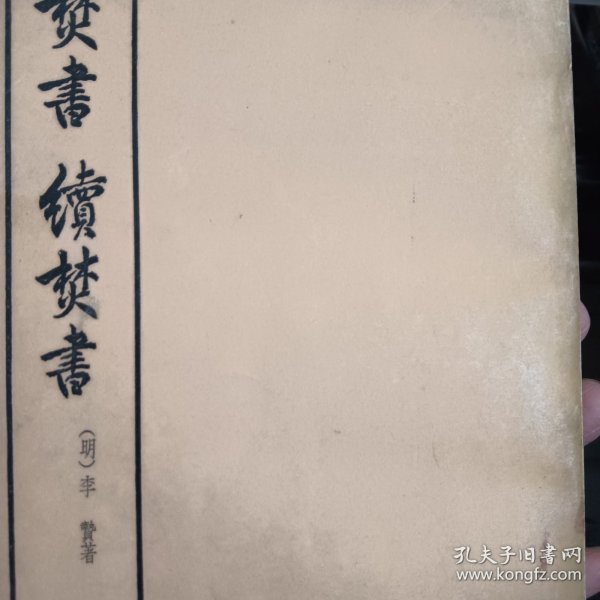 焚書 續焚書
(明)李 贄著
孔夫子旧书网
www.kongfz.com